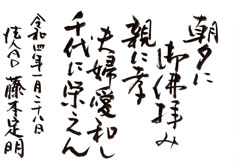 朝夕に
御佛拝み
親に孝
夫婦愛和し
千代に栄えん
令和四年一月二十八日
藤本定明